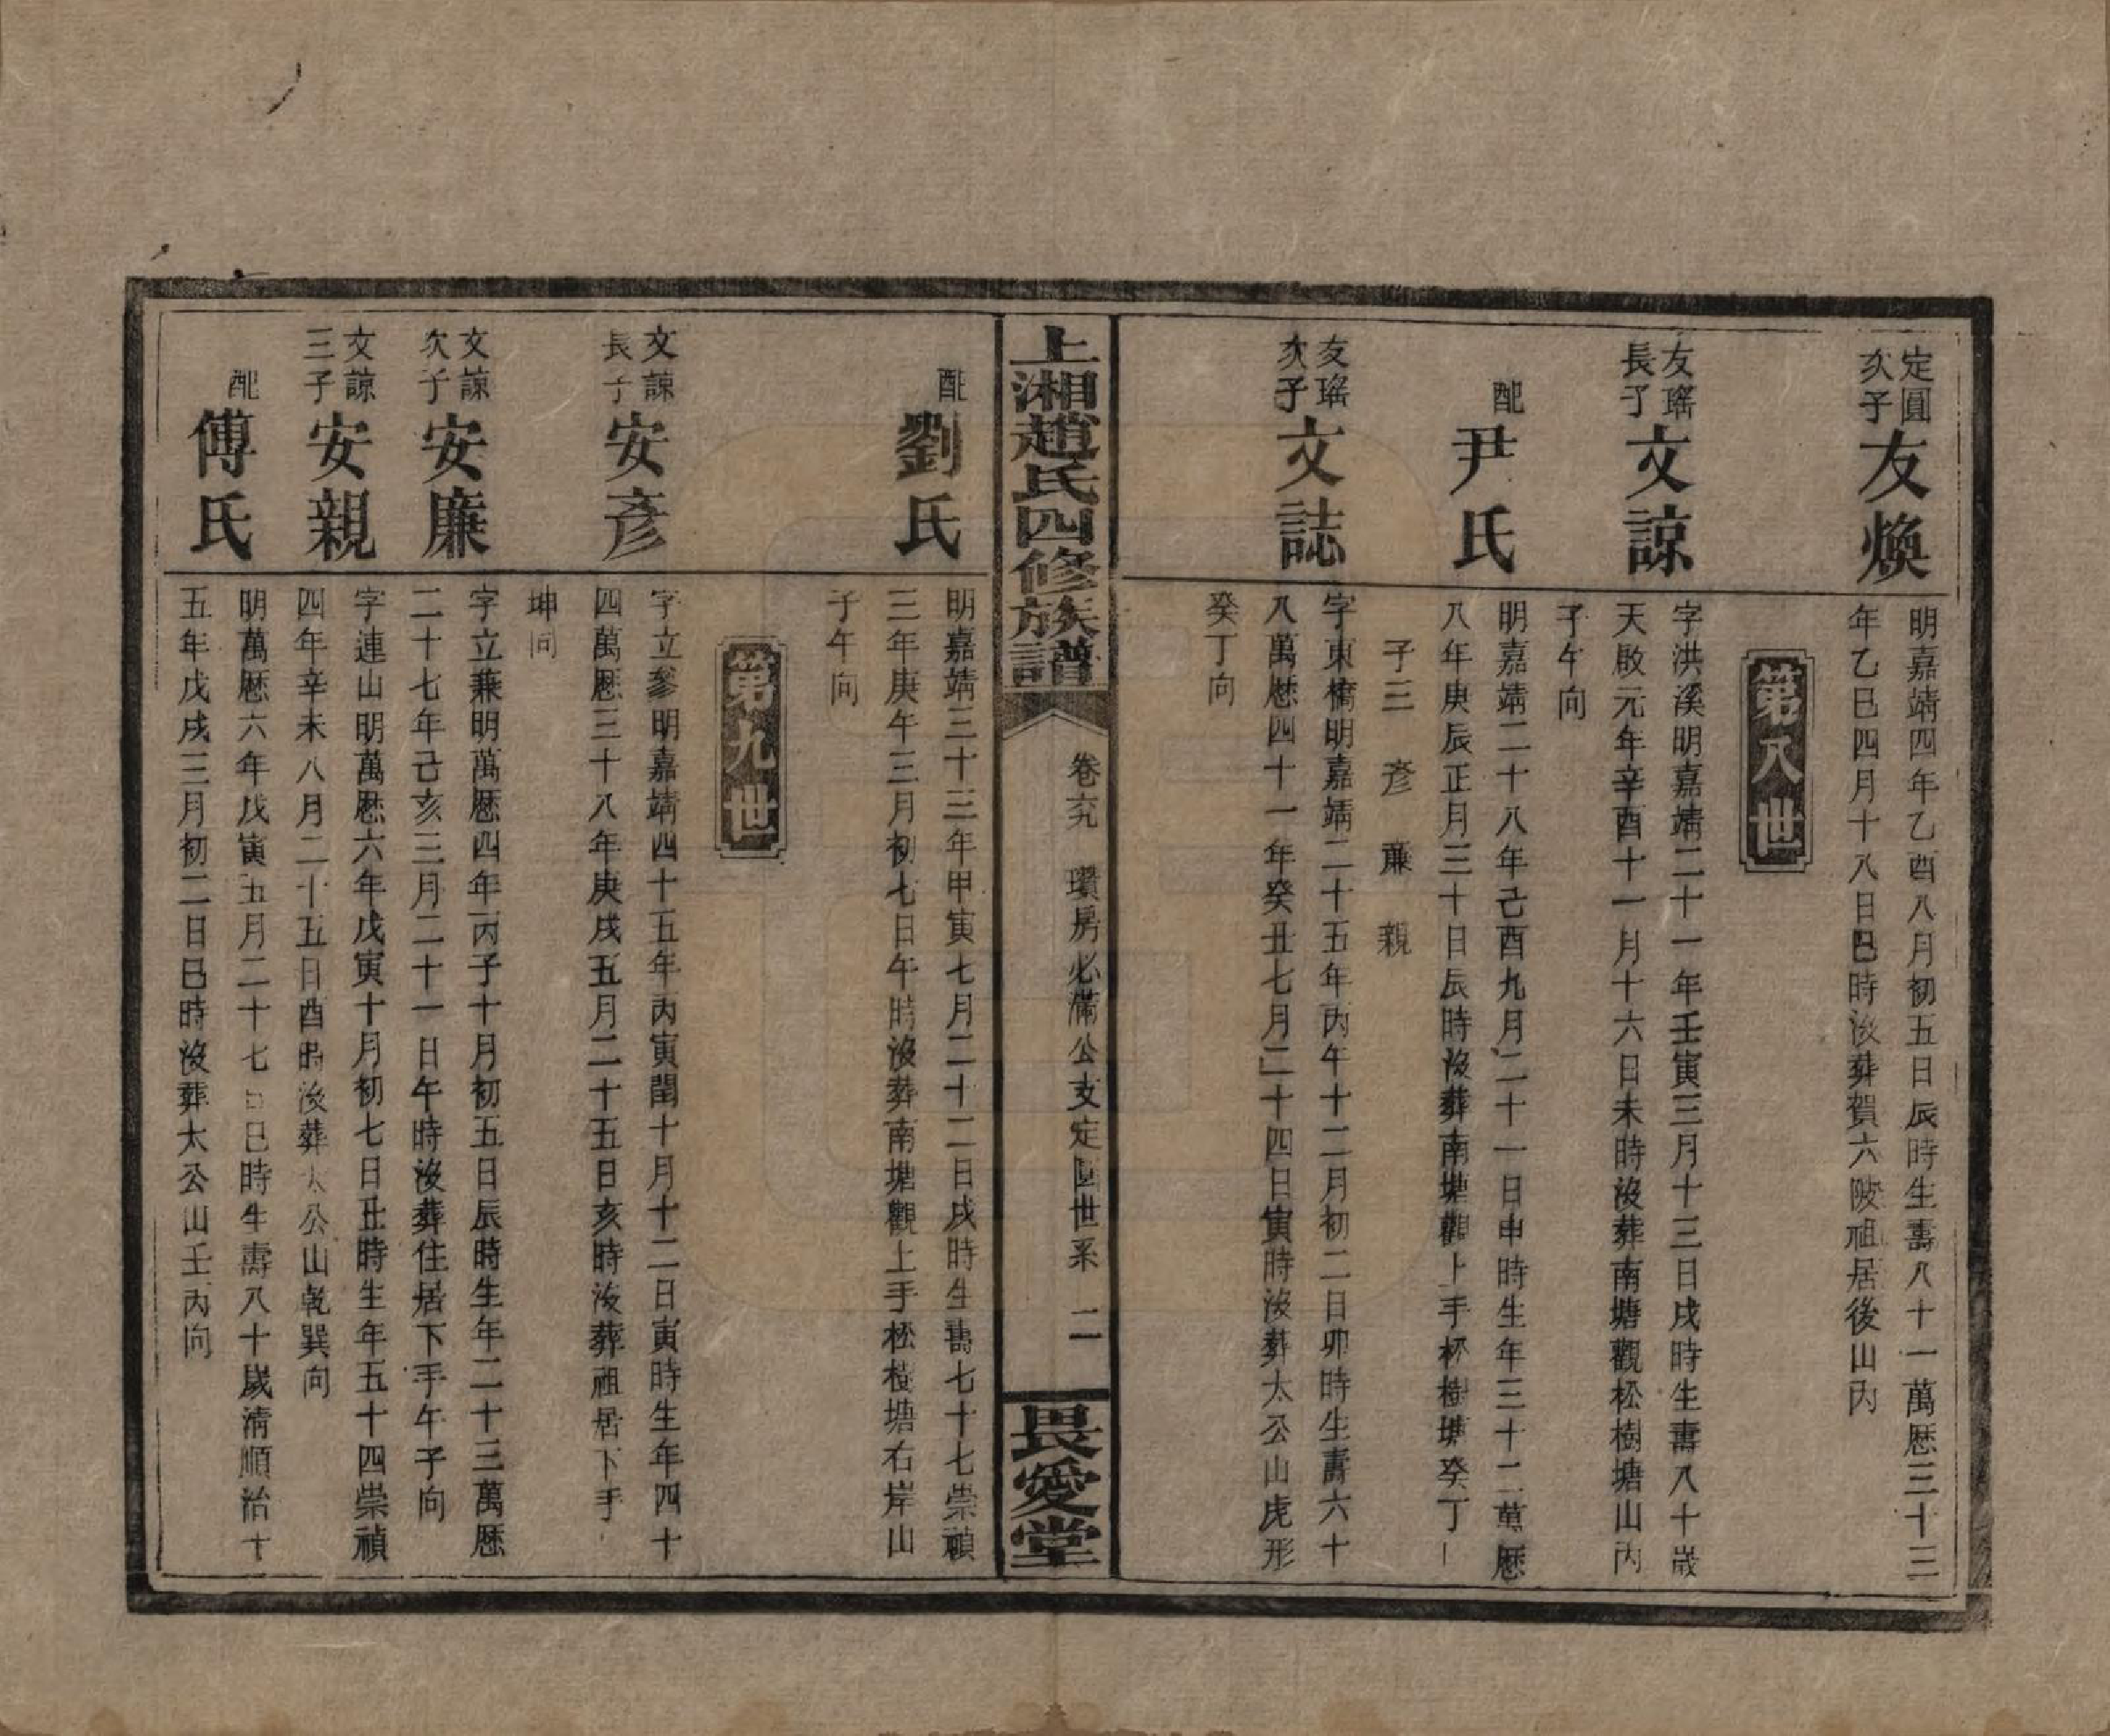 定圓
次子
友煥
明嘉靖四年乙酉八月初五日辰時生壽八十一萬歷三十三
年乙巳四月十八日巳時沒葬賀六陂祖居後山丙
第八世
友瑤
長子
文諒
字洪溪明嘉靖二十一年壬寅三月十三日戌時生壽八十歲
天啟元年辛酉十一月十六日未時沒葬南塘觀松樹塘山丙
子午向
配
尹氏
明嘉靖二十八年己酉九月二十一日申時生年三十二萬歷
八年庚辰正月三十日辰時沒葬南塘觀上手杯樹塘癸丁
子三 彥 廉 親
友瑤
次子
文誌
字東橋明嘉靖二十五年丙午十二月初二日卯時生壽六十
八萬歷四十一年癸丑七月二十四日寅時沒葬太公山虎形
癸丁向
上湘趙氏四修族譜
卷六 瓚房必滿公支定圓世系 二
畏愛堂
配
劉氏
明嘉靖三十三年甲寅七月二十二日戌時生壽七十七崇禎
三年庚午三月初七日午時沒葬南塘觀上手松樹塘右岸山
子午向
第九世
文諒
長子
安彥
字立參明嘉靖四十五年丙寅閏十月十二日寅時生年四十
四萬歷三十八年庚戌五月二十五日亥時沒葬祖居下手
坤向
文諒
次子
安廉
字立蒹明萬歷四年丙子十月初五日辰時生年二十三萬歷
二十七年己亥三月二十一日午時沒葬住居下手午子向
文諒
三子
安親
字連山明萬歷六年戊寅十月初七日丑時生年五十四崇禎
四年辛未八月二十五日酉時沒葬太公山乾巽向
配
傅氏
明萬歷六年戊寅五月二十七日巳時生壽八十歲清順治十
五年戊戌三月初二日巳時沒葬太公山壬丙向